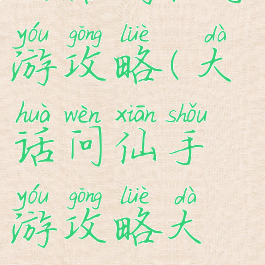 yóu gōng lüè dà
游攻略(大
huà wèn xiān shǒu
话问仙手
yóu gōng lüè dà
游攻略大